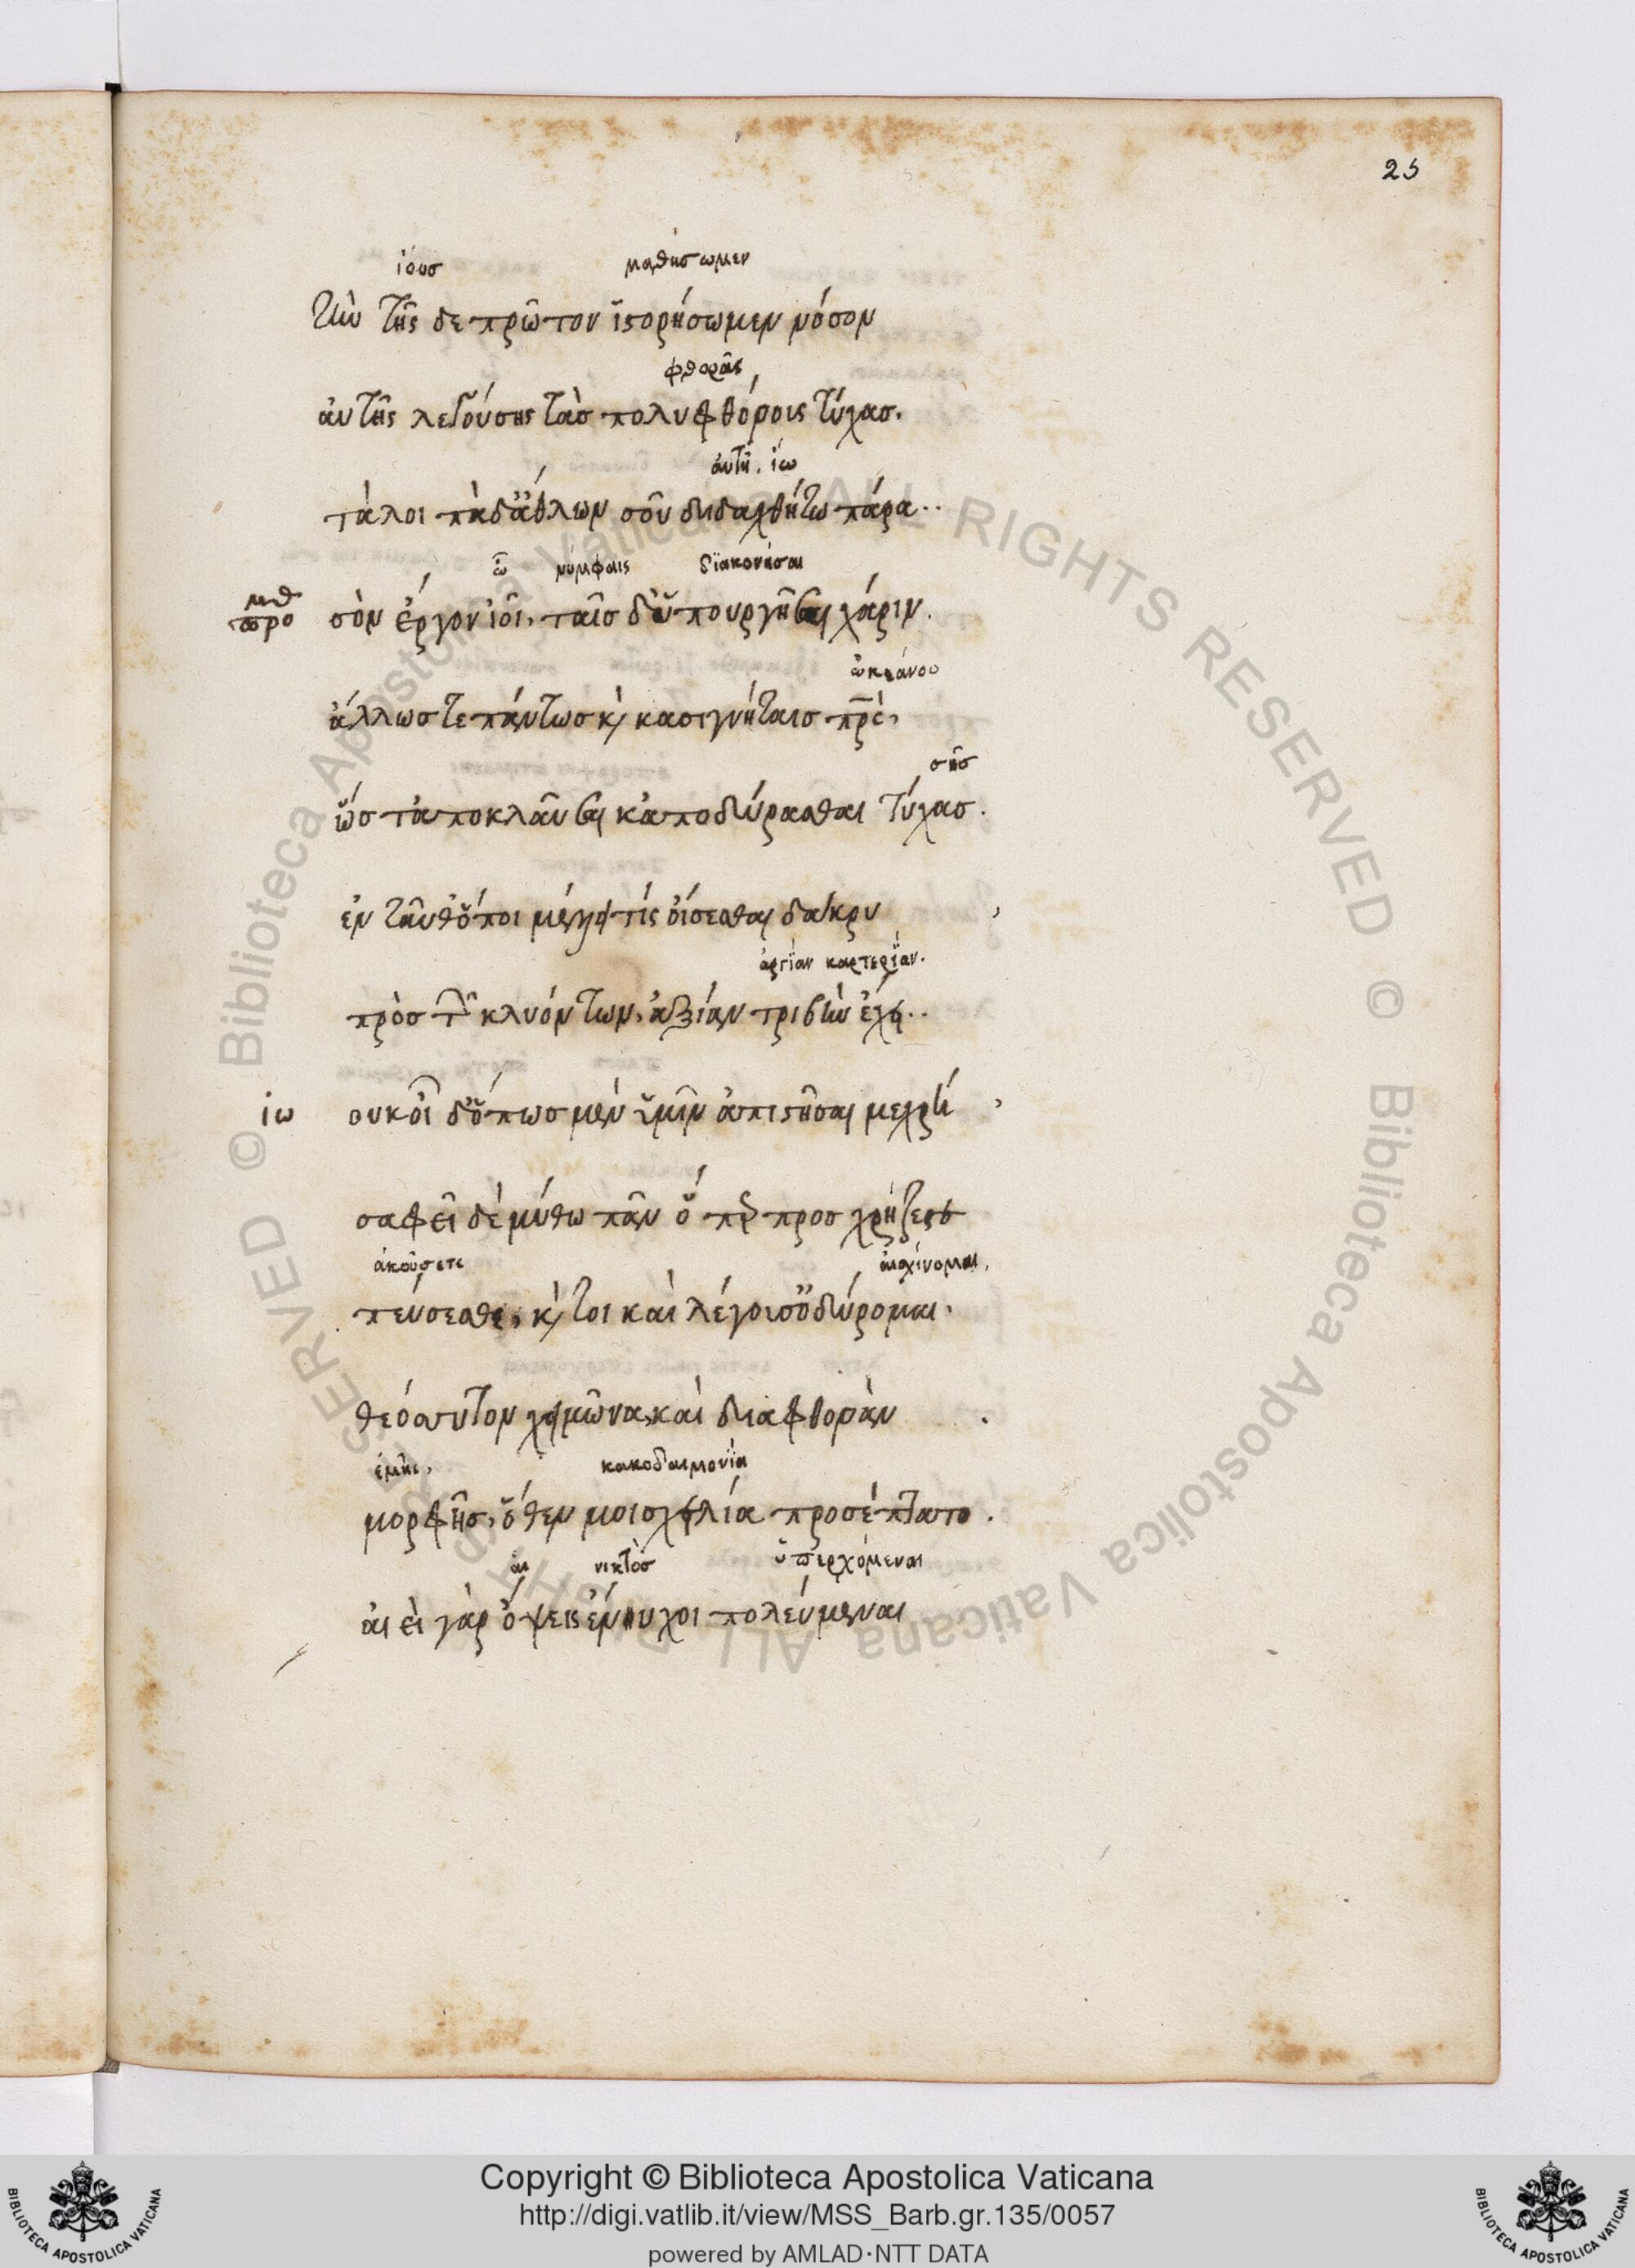 25
ἰουσ μαθήσωμεν
τὴν τῆς δε πρῶτον ἱστορήσωμεν νόσον
φθορᾶς
ἀυτῆς λεγούσης τὰσ πολυφθόροις τύχασ.
ἀυτῆ. ἰω
τὰλοι πὰ δ' ἄθλων σοῦ διδαχθήτω πάρα..
ὦ νύμφαις διακονῆσαι
προμθ σὸν ἔργον ἰοῖ, ταῖσ δ' ὑπουργῆσαι χάριν.
ὠκεάνου
ἄλλωσ τε πάντωσ κ(αὶ) κασιγνήταισ πρς,
σῆσ
ὥσ τἀποκλαῦσαι κἀποδύρασθαι τύχασ.
ἐν ταῦθ' ὅποι μέλλει τίς οἴσεσθαι δάκρυ ,
ἀργίαν καρτερίαν.
πρὸσ τῶν κλυόντων, ἀξίαν τριβὴν ἔχει..
ιω ουκ οἶδ' ὅπωσ μὲν ὑμῖν ἀπιστῆσαι με χρή ,
σαφεῖ δὲ μύθω πᾶν ὅπερ προσχρήζετε
ἀκούσετε αἰσχύνομαι,
πεύσεσθε, κ(αί) τοι καὶ λέγουσ' ὀδύρομαι.
θεόσσυτον χειμῶνα, καὶ διαφθορὰν .
ἐμῆς, κακοδαιμονία
μορφῆσ, ὅθεν μοι σχετλία προσέπτατο.
αἱ νικτὸσ ὑπερχόμεναι
ἀιεὶ γὰρ ὄψεις ἔννυχοι πολεύμεναι
Copyright © Biblioteca Apostolica Vaticana
http://digi.vatlib.it/view/MSS_Barb.gr.135/0057
powered by AMLAD·NTT DATA
BIBLIOTECA APOSTOLICA VATICANA
BIBLIOTECA APOSTOLICA VATICANA
© Biblioteca Apostolica Vaticana ALL RIGHTS RESERVED
© Biblioteca Apostolica Vaticana ALL RIGHTS RESERVED